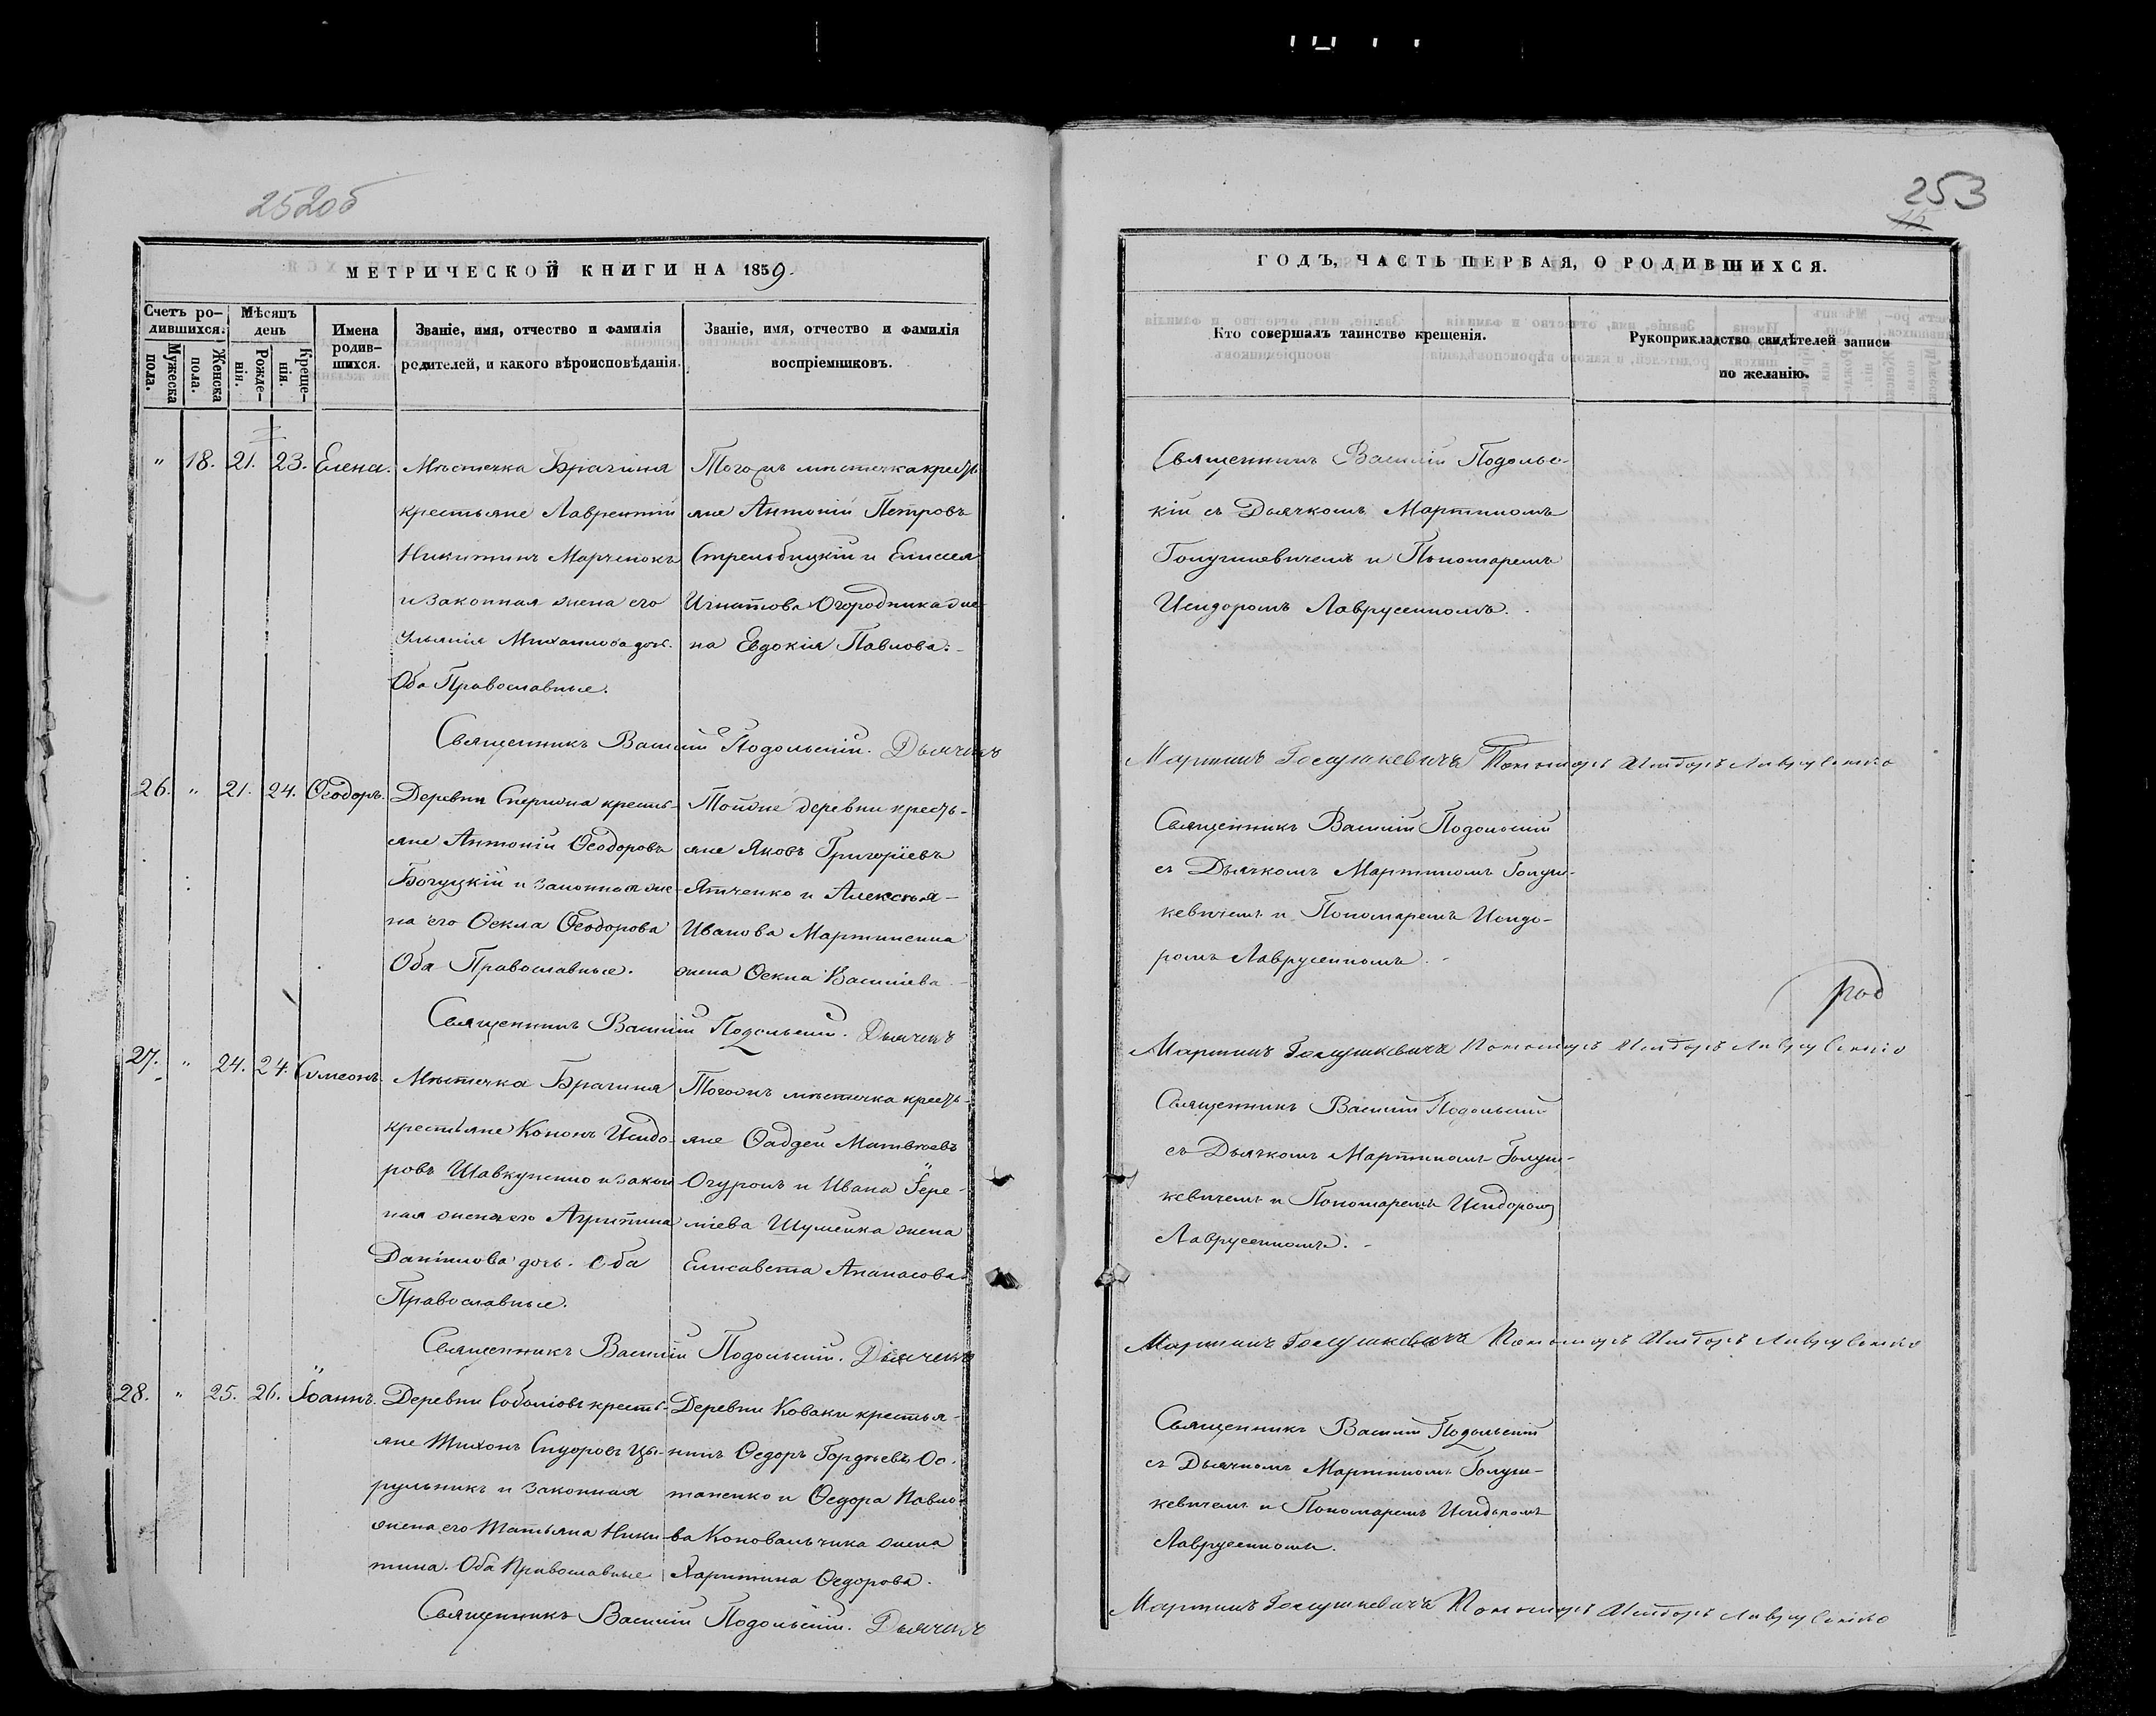 252об
253
МЕТРИЧЕСКОЙ КНИГИ НА 1859.
Счетъ ро-
дившихся.
Мужеска
пола.
Женска
пола.
Мѣсяцъ
день
Рожде-
нія.
Креще-
нія.
Имена
родив-
шихся.
Званіе, имя, отчество и фамилія
родителей, и какого вѣроисповѣданія.
Званіе, имя, отчество и фамилія
воспріемниковъ.
" 18. 21. 23. Елена.
Мѣстечка Брагиня
крестьяне Лаврентій
Никитинъ Марченокъ
и законная жена его
Ульянія Михаилова дочь.
Оба Православные.
Тогожъ мѣстечка кресть
яне Антоній Петровъ
Стрельбицкій и Елисея
Игнатова Огородника же-
на Евдокія Павлова.
Священникъ Василій Подольскій. Дьячекъ
26. " 21. 24. Ѳеодоръ.
Деревни кресть-
яне Антоній Ѳеодоровъ
Богуцкій и законная же-
на его Ѳекла Ѳеодорова
Оба Православные.
Тойже деревни кресть-
яне Яковъ Григоріевъ
Ятченко и Алексѣя
Иванова Мартиненка
жена Ѳекла Василіева
Священникъ Василій Подольскій. Дьячекъ
27. " 24. 24. Симеонъ.
Мѣстечка Брагиня
крестьяне Кононъ Исидо-
ровъ Шавкуненко и закон
ная жена его Агрипина
Даніилова дочь. Оба
Православные.
Тогожъ мѣстечка кресть-
яне Ѳаддей Матвѣевъ
Огуромъ и Ивана Іере-
міева Шуменка жена
Елисавета Апанасова
Священникъ Василій Подольскій. Дьячекъ
28. " 25. 26. Іоаннъ.
Деревни Соболіовъ кресть-
яне Тихонъ Сидоровъ Цы-
рульникъ и законная
жена его Татьяна Ники-
тина. Оба Православные
Деревни Коваки крестья-
нинъ Ѳедоръ Гордѣевъ Ос-
таненко и Ѳедора Павло-
ва Коновальчика жена
Харитина Ѳедорова.
Священникъ Василій Подольскій. Дьячекъ
ГОДЪ, ЧАСТЬ ПЕРВАЯ, О РОДИВШИХСЯ.
Кто совершалъ таинство крещенія.
Рукоприкладство свидѣтелей записи
по желанію.
Священникъ Василій Подольс-
кій съ Дьячкомъ Мартиномъ
Голушкевичемъ и Пономаремъ
Исидоромъ Лаврусенкомъ.
Мартинъ Голушкевичъ Пономарь Исидоръ Лаврусенко
Священникъ Василій Подольскій
съ Дьячкомъ Мартиномъ Голуш-
кевичемъ и Пономаремъ Исидо-
ромъ Лаврусенкомъ.
Мартинъ Голушкевичъ Пономарь Исидоръ Лаврусенко
Священникъ Василій Подольскій
съ Дьячкомъ Мартиномъ Голуш-
кевичемъ и Пономаремъ Исидоромъ
Лаврусенкомъ.
Мартинъ Голушкевичъ Пономарь Исидоръ Лаврусенко
Священникъ Василій Подольскій
съ Дьячкомъ Мартиномъ Голуш-
кевичемъ и Пономаремъ Исидоромъ
Лаврусенкомъ.
Мартинъ Голушкевичъ Пономарь Исидоръ Лаврусенко